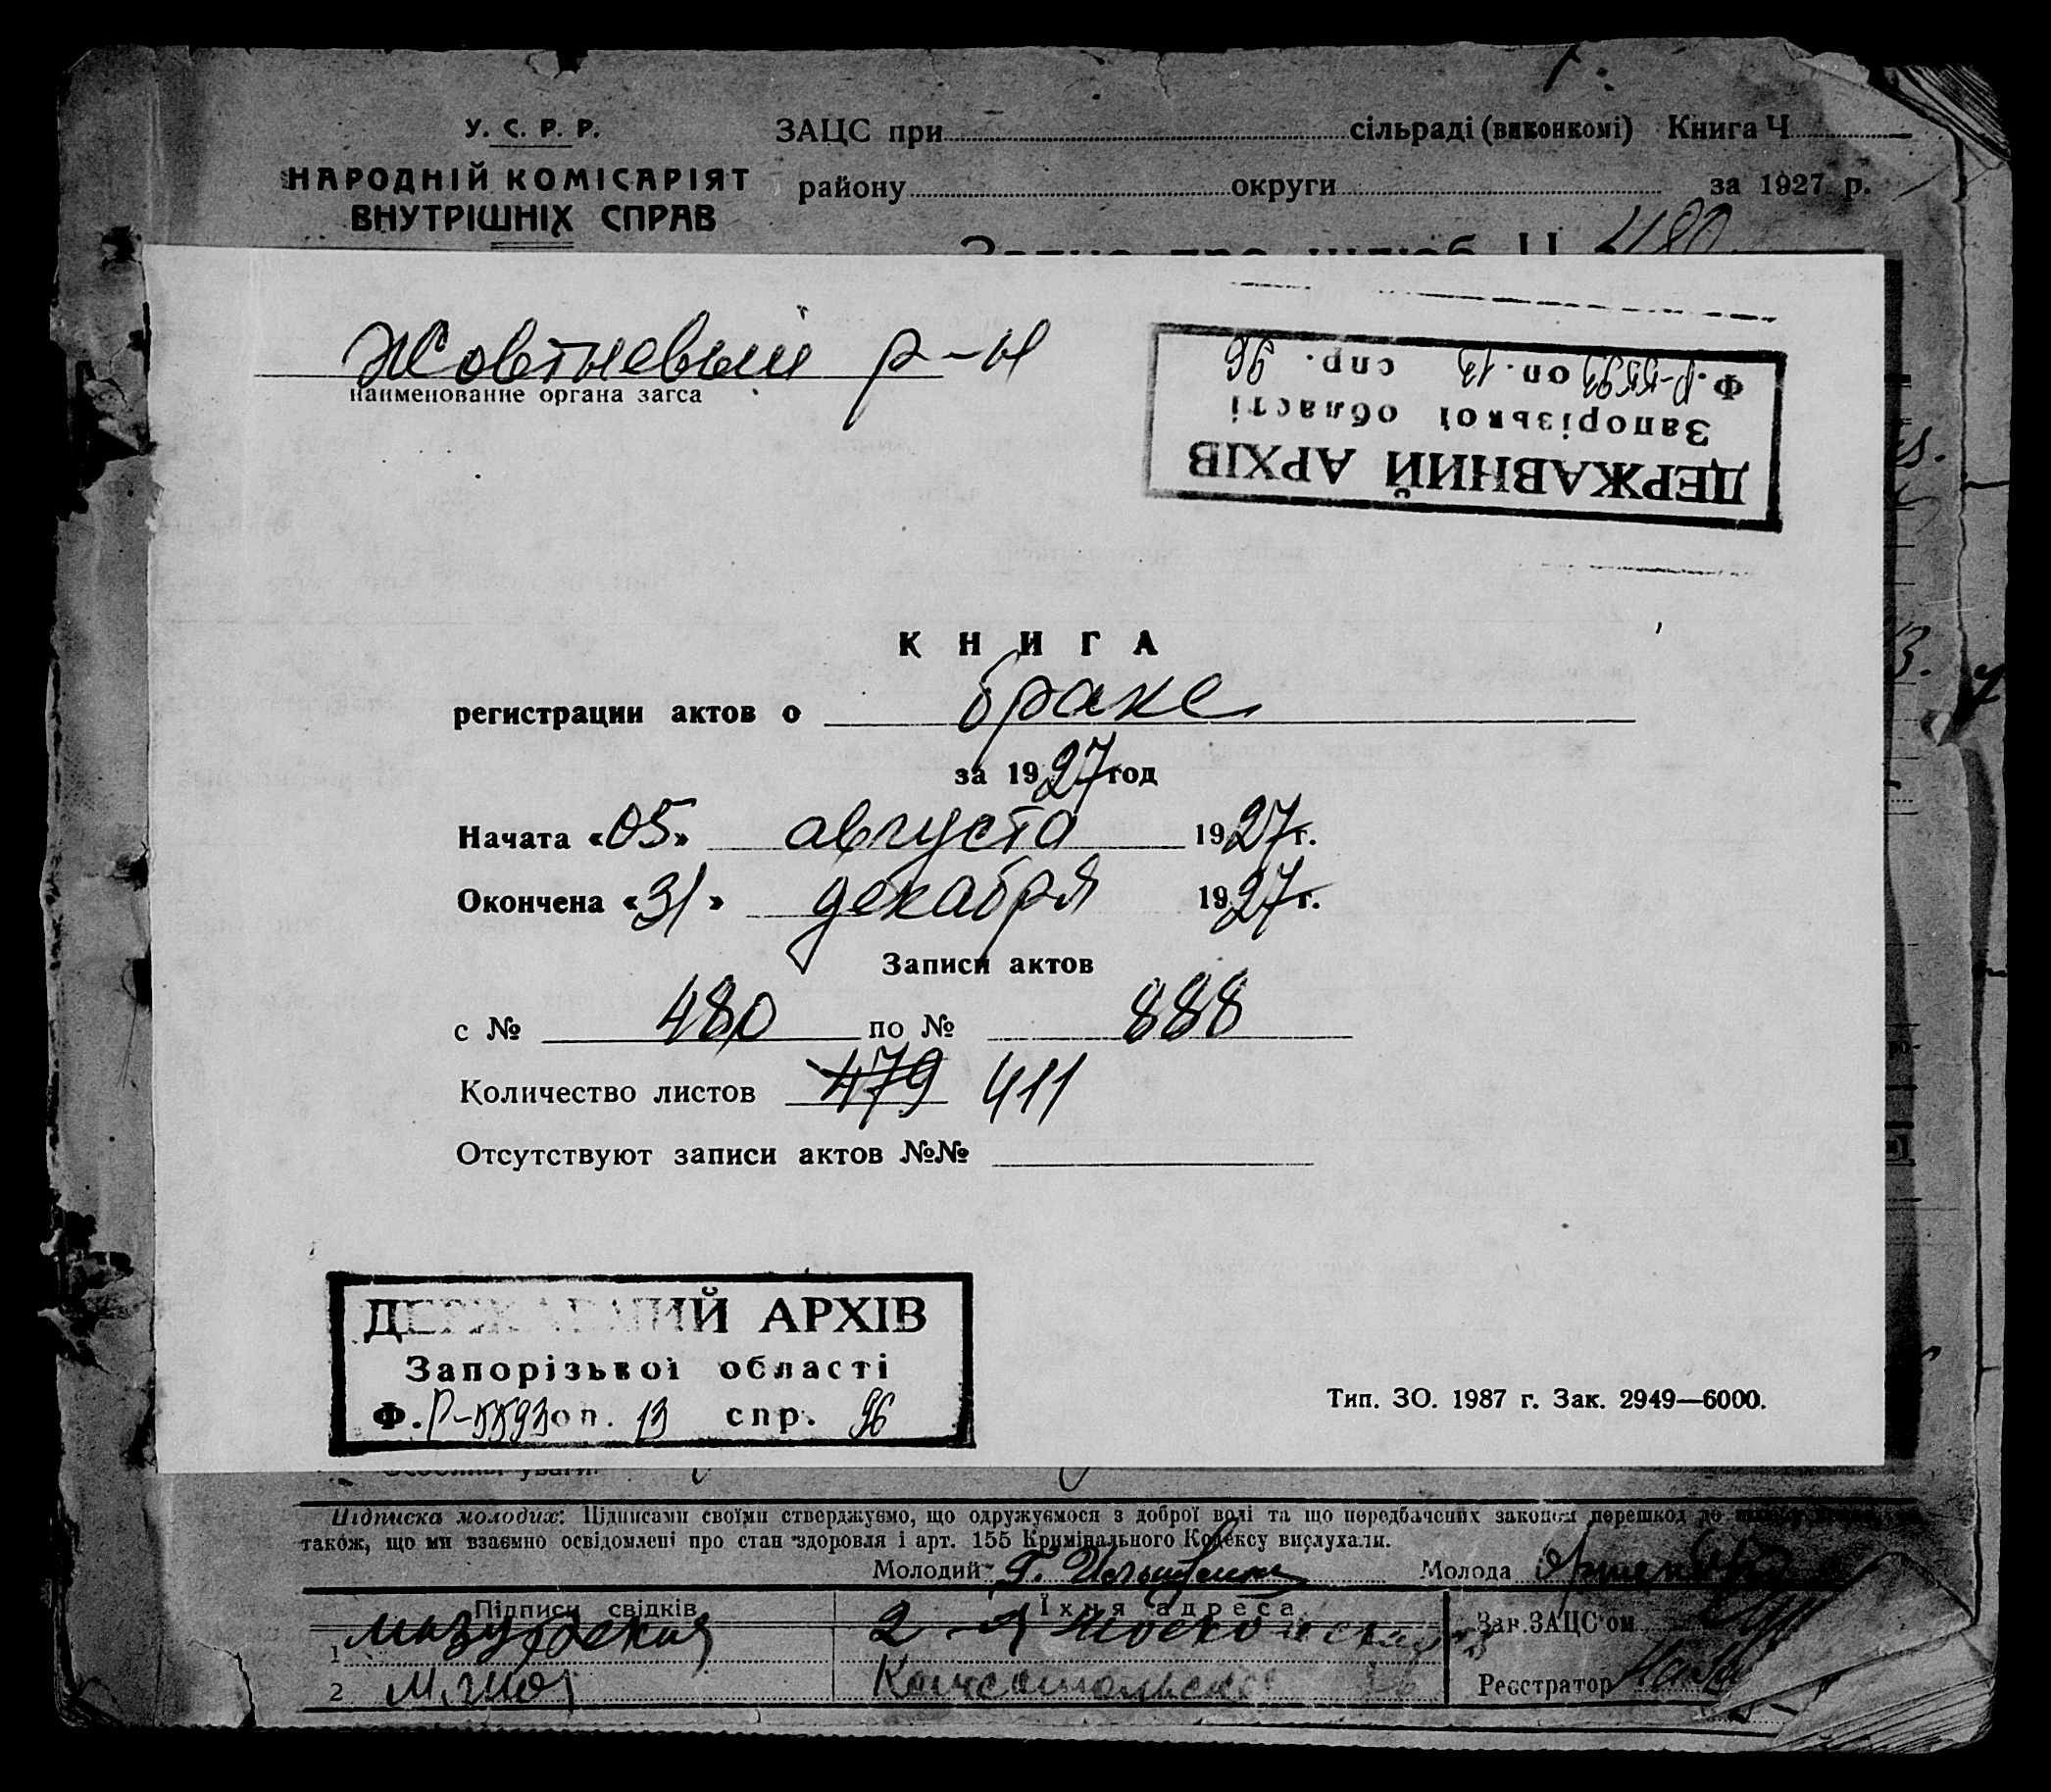 У. С. Р. Р.
НАРОДНІЙ КОМІСАРІЯТ
ВНУТРІШНІХ СПРАВ
ЗАЦС при сільраді (виконкомі) Книга Ч
району округи за 1927 р.
Запис про шлюб Ч 480
Жовтневый р-н
наименование органа загса
ДЕРЖАВНИЙ АРХІВ
Запорізької області
Ф. Р-5593 оп. 13 спр. 96
КНИГА
регистрации актов о браке
за 1927 год
Начата «05» августа 1927 г.
Окончена «31» декабря 1927 г.
Записи актов
с № 480 по № 888
Количество листов 479 411
Отсутствуют записи актов №№
ДЕРЖАВНИЙ АРХІВ
Запорізької області
Ф. Р-5593 оп. 13 спр. 96
Тип. ЗО. 1987 г. Зак. 2949—6000.
Особливі уваги:
Підписка молодих: Підписами своїми стверджуємо, що одружуємося з доброї волі та що передбачених законом перешкод до
також, що ми взаємно освідомлені про стан здоровля і арт. 155 Кримінального Кодексу вислухали.
Молодий Г. Молода
Підписи свідків Їхня адреса Зав. ЗАЦС'ом
1 Мазурвская 2-я Московская
2 Комсомольская Реєстратор